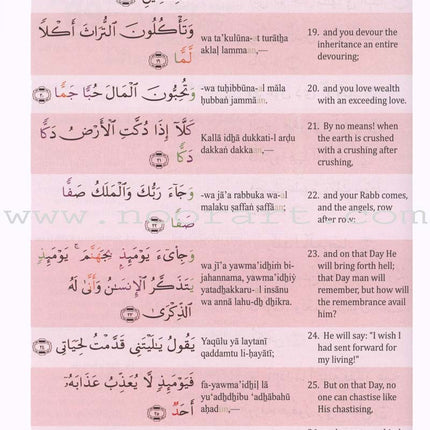 وَتَأْكُلُونَ التُّرَاثَ أَكْلًا wa ta'kulūna-t turātha 19. and you devour the
لَّمًّا ١٩ aklal lamman,— inheritance an entire
devouring;
وَتُحِبُّونَ الْمَالَ حُبًّا جَمًّا ٢٠ -wa tuḥibbūna-al māla 20. and you love wealth
ḥubban jammān. with an exceeding love.
كَلَّا إِذَا دُكَّتِ الْأَرْضُ دَكًّا Kallā idhā dukkati-l arḍu 21. By no means! when
دَكًّا ٢١ dakkan dakkan,— the earth is crushed
with a crushing after
crushing,
وَجَاءَ رَبُّكَ وَالْمَلَكُ صَفًّا -wa jā'a rabbuka wa-al 22. and your Rabb comes,
صَفًّا ٢٢ malaku ṣaffan ṣaffan; and the angels, row
after row;
وَجِايءَ يَوْمَئِذٍ بِجَهَنَّمَ ۚ يَوْمَئِذٍ wa jī'a yawma'idhim bi- 23. and on that Day He
يَتَذَكَّرُ الْإِنسَانُ وَأَنَّى لَهُ jahannama, yawma'idhiy will bring forth hell;
الذِّكْرَى ٢٣ yatadhakkaru-l insānu that Day man will
wa annā lahu-dh dhikra. remember, but how will
the remembrance avail
him?
يَقُولُ يَا لَيْتَنِي قَدَّمْتُ لِحَيَاتِي ٢٤ Yaqūlu yā laytanī 24. He will say: "I wish I
qaddamtu li-ḥayātī; had sent forward for
my living!"
فَيَوْمَئِذٍ لَّا يُعَذِّبُ عَذَابَهُ fa-yawma'idhil lā 25. But on that Day, no
أَحَدٌ ٢٥ yu'adhdhibu 'adhābahū one can chastise like
aḥadun, His chastising,